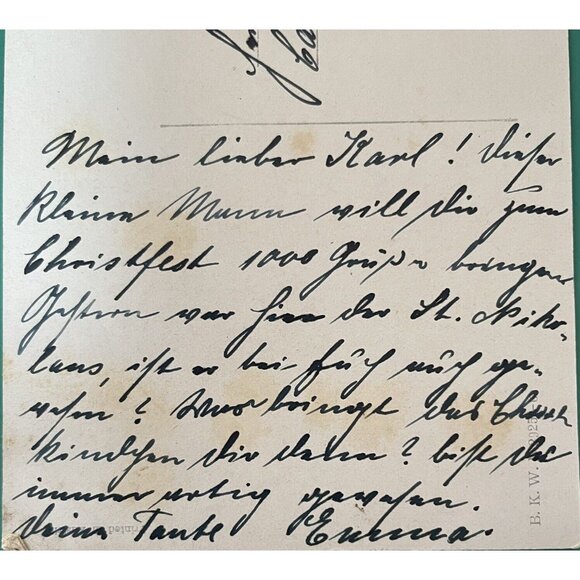 Mein lieber Karl! Dieser
kleine Mann will dir zum
Christfest 1000 Grüße bringen
Gestern war hier der St. Niko-
laus, ist er bei Euch auch ge-
wesen? Was bringt das Christ
kindchen dir denn? bist du
immer artig gewesen.
Deine Tante Emma.
B. K. W.